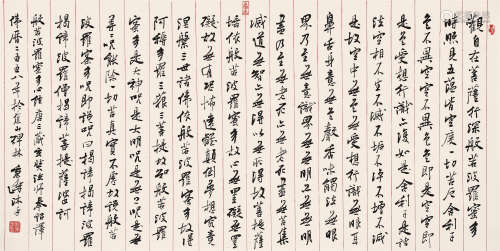 觀自在菩薩行深般若波羅蜜多
時照見五蘊皆空度一切苦厄舍利子
色不異空空不異色色即是空空即
是色受想行識亦復如是舍利子是諸
法空相不生不滅不垢不淨不增不減
是故空中無色無受想行識無眼耳
鼻舌身意無色聲香味觸法無眼
界乃至無意識界無無明亦無無明
盡乃至無老死亦無老死盡無苦集
滅道無智亦無得以無所得故菩提薩
埵依般若波羅蜜多故心無罣礙無罣
礙故無有恐怖遠離顛倒夢想究竟
涅槃三世諸佛依般若波羅蜜多故得
阿耨多羅三藐三菩提故知般若波羅蜜
多是大神咒是大明咒是無上咒是無等
等咒能除一切苦真實不虛故說般若
波羅蜜多咒即說咒曰揭諦揭諦波羅
揭諦波羅僧揭諦菩提薩婆訶
般若波羅蜜多心經唐三藏玄奘法師奉詔譯
佛曆二五五八年於焦山禪林沐手